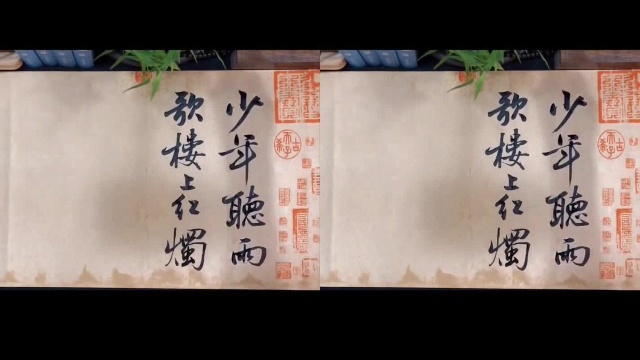 少年聽雨
歌楼上红燭
少年聽雨
歌楼上红燭